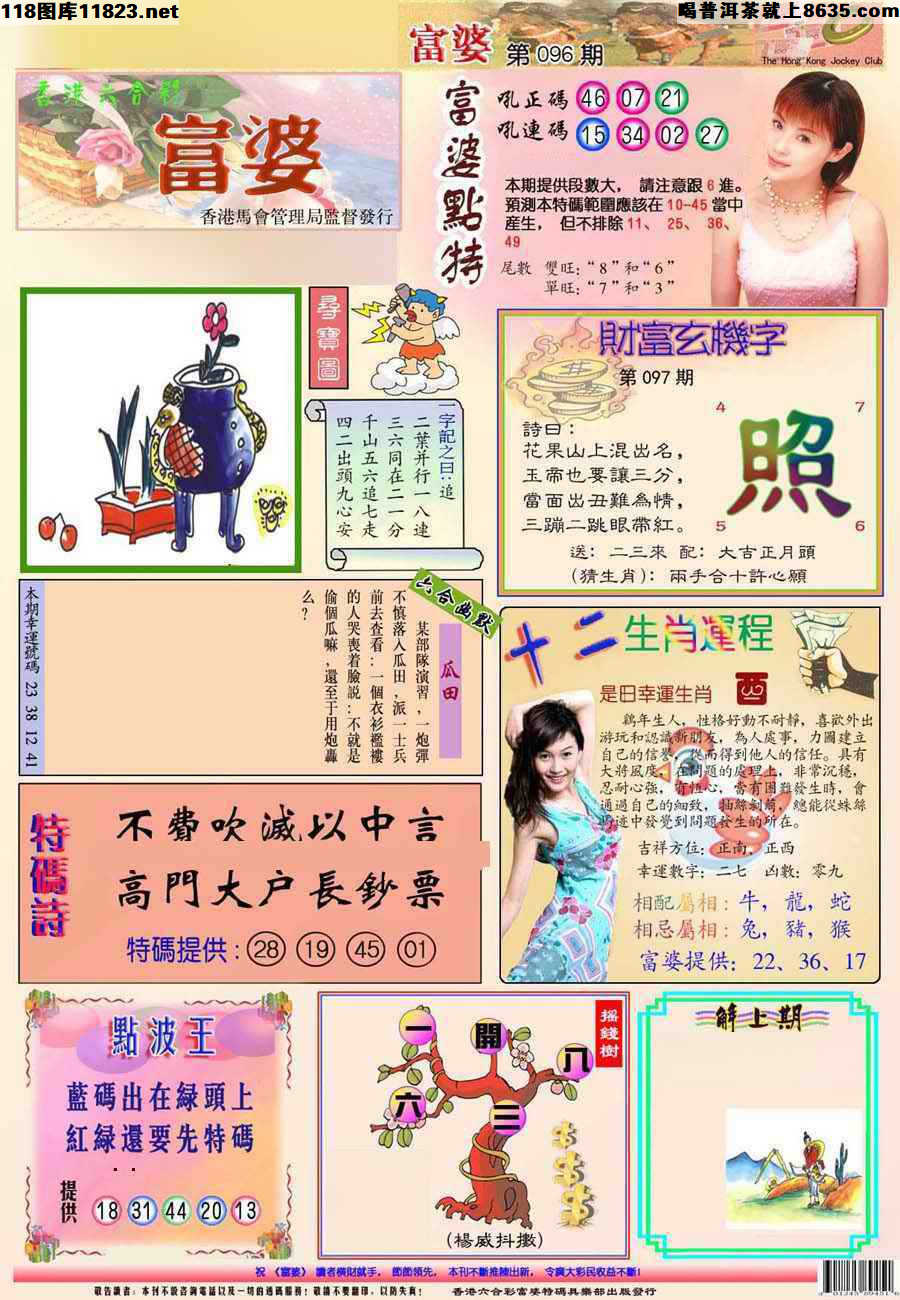 118图库11823.net
喝普洱茶就上8635.com
富婆 第096期
The Hong Kong Jockey Club
香港六合彩
富婆
香港馬會管理局監督發行
富婆點特
吼正碼 46 07 21
吼連碼 15 34 02 27
本期提供段數大， 請注意跟6進。
預測本特碼範圍應該在10-45當中
産生， 但不排除11、 25、 36、
49
尾數 雙旺：“8”和“6”
單旺：“7”和“3”
尋寶圖
一字記之曰：追
二葉并行一八連
三六同在二一分
千山五六追七走
四二出頭九心安
財富玄機字
第097期
詩曰：
花果山上混出名，
玉帝也要讓三分，
當面出丑難為情，
三蹦二跳眼帶紅。
4 7
照
5 6
送： 二三來 配： 大吉正月頭
(猜生肖)： 兩手合十許心願
本期幸運號碼 23 38 12 41
六合幽默
瓜田
某部隊演習，一炮彈
不慎落入瓜田，派一士兵
前去查看：一個衣衫襤褸
的人哭喪着臉説：不就是
偷個瓜嘛，還至于用炮轟
么？
十二生肖運程
是日幸運生肖 酉
鷄年生人，性格好動不耐靜，喜歡外出
游玩和認識新朋友，為人處事，力圖建立
自己的信譽，從而得到他人的信任。具有
大將風度，在問題的處理上，非常沉穩，
忍耐心強，有恆心，當有困難發生時，會
通過自己的細致，抽絲剝繭，總能從蛛絲
馬迹中發覺到問題發生的所在。
吉祥方位：正南，正西
幸運數字：二七 凶數：零九
相配屬相：牛，龍，蛇
相忌屬相：兔，豬，猴
富婆提供：22、36、17
特碼詩
不費吹滅以中言
高門大户長鈔票
特碼提供：28 19 45 01
點波王
藍碼出在緑頭上
紅緑還要先特碼
提供 18 31 44 20 13
搖錢樹
一 開 八
六 三
(楊威抖擻)
解上期
祝 《富婆》 讀者橫財就手， 節節領先， 本刊不斷推陳出新， 令廣大彩民收益不斷！
敬告讀者：本刊不設咨詢電話以及一切的透碼服務！敬請不要翻印，以防失真！ 香港六合彩富婆特碼具樂部出版發行